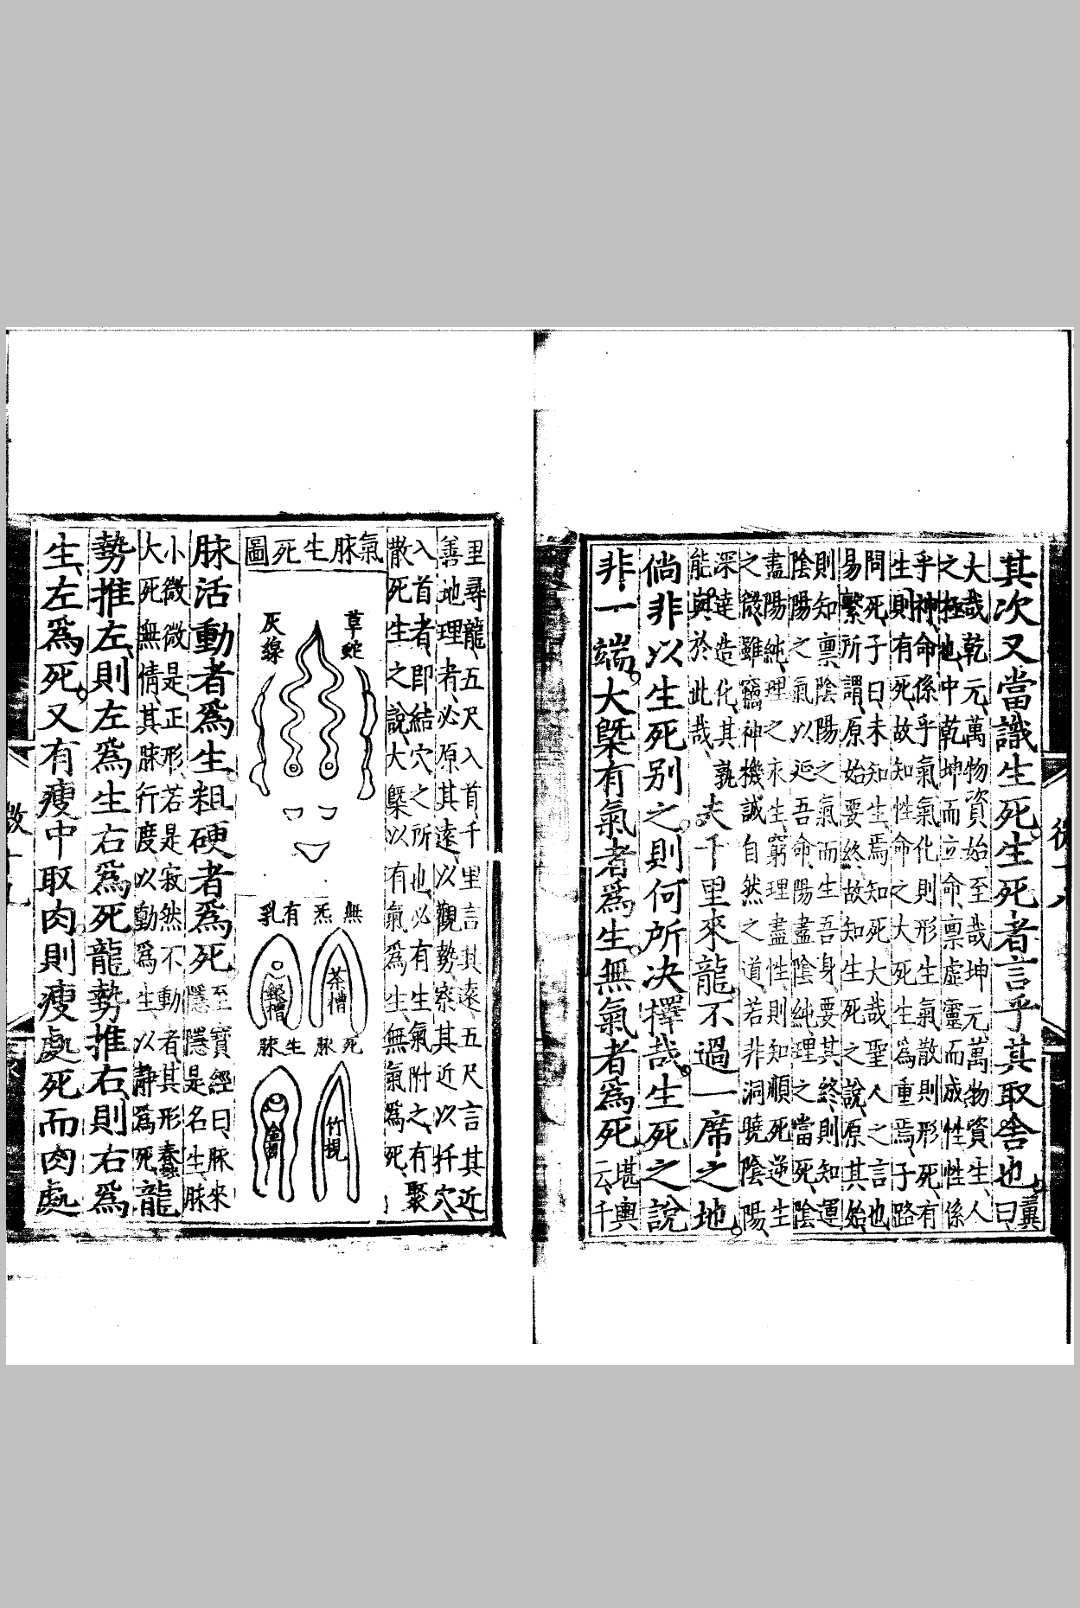 其次又當識生死生死者言乎其取舍也
易曰
大哉乾元萬物資始至哉坤元萬物資生人
之極也中乾坤而立命禀虛靈而成性性係
乎神命係乎氣氣化則形生氣散則形死有
生則有死故知性命之大死生為重焉子路
問死子曰未知生焉知死大哉聖人之言也
易繫所謂原始要終故知生死之說原其始
則知禀陰陽之氣而生吾身要其終則知運
陰陽之氣以延吾命陽盡陰純理之當死陰
盡陽純理之永生窮理盡性則知順死逆生
之微雖竊神機誠自然之道若非洞曉陰陽
深達造化其孰
能與於此哉
夫千里來龍不過一席之地
倘非以生死别之則何所决擇哉生死之說
非一端大槩有氣者爲生無氣者爲死
堪輿
云千
里尋龍五尺入首千里言其遠五尺言其近
善地理者必原其遠以觀勢察其近以扦穴
入首者即結穴之所也必有生氣附之有聚
散死生之說大槩以有氣爲生無氣爲死
氣脉生死圖
草蛇
灰線
無炁
有乳
茶槽
死脉
生脉
竹規
脉活動者爲生粗硬者爲死
至寶經曰脉來
隱隱是名生脉
小微微是正形若是寂然不動者其形蠢
大死無情其脉行度以動爲生以靜爲死
龍
勢推左則左爲生右爲死龍勢推右則右爲
生左爲死又有瘦中取肉則瘦處死而肉處